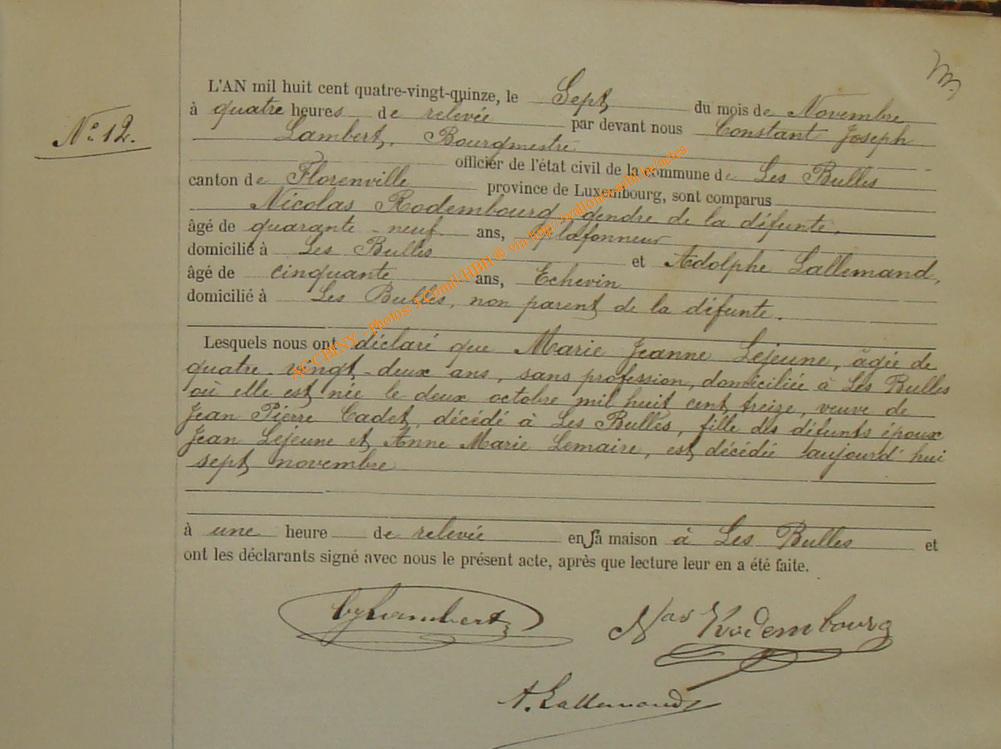 L'AN mil huit cent quatre-vingt-quinze, le Sept du mois de Novembre
à quatre heures de relevée par devant nous Constant Joseph
Nº 12.
Lambert, Bourgmestre
officier de l'état civil de la commune de Les Bulles
canton de Florenville province de Luxembourg, sont comparus
Nicolas Rodembourg, gendre de la défunte,
âgé de quarante-neuf ans, plafonneur
domicilié à Les Bulles et Adolphe Lallemand,
âgé de cinquante ans, Echevin
domicilié à Les Bulles, non parent de la défunte.
Lesquels nous ont déclaré que Marie Jeanne Lejeune, âgée de
quatre-vingt-deux ans, sans profession, domiciliée à Les Bulles
où elle est née le deux octobre mil huit cent treize, veuve de
Jean Pierre Cadet, décédé à Les Bulles, fille des défunts époux
Jean Lejeune et Anne Marie Lemaire, est décédée aujourd'hui
sept novembre
à une heure de relevée en sa maison à Les Bulles et
ont les déclarants signé avec nous le présent acte, après que lecture leur en a été faite.
Lambert Nas Rodembourg
A. Lallemand